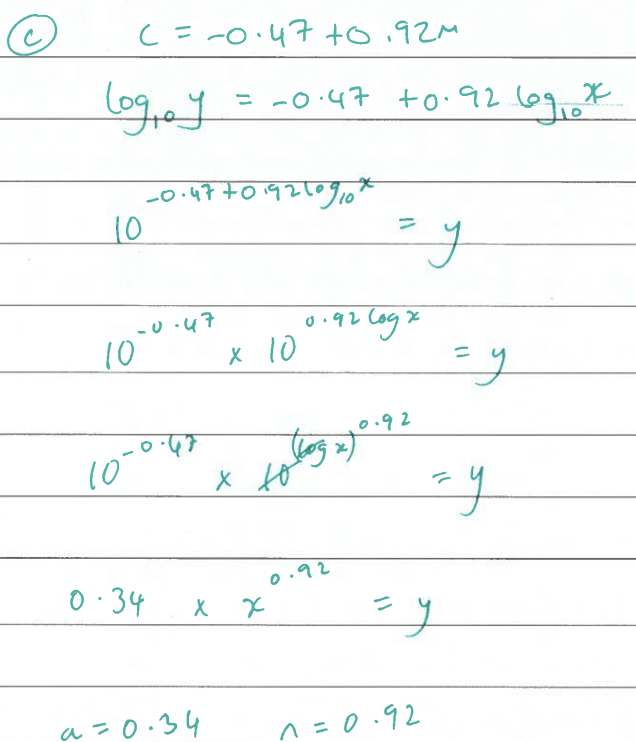 (c) C = -0.47 + 0.92m
log₁₀ y = -0.47 + 0.92 log₁₀ x
10^(-0.47 + 0.92 log₁₀ x) = y
10^(-0.47) × 10^(0.92 log x) = y
10^(-0.47) × 10^(log x)^0.92 = y
0.34 × x^0.92 = y
a = 0.34 n = 0.92